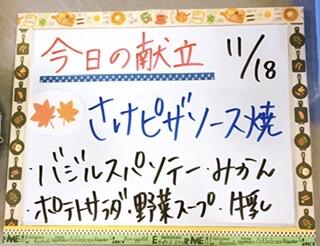 今日の献立 11/18
さけピザソース焼
・バジルスパソテー・みかん
ポテトサラダ・野菜スープ・牛乳